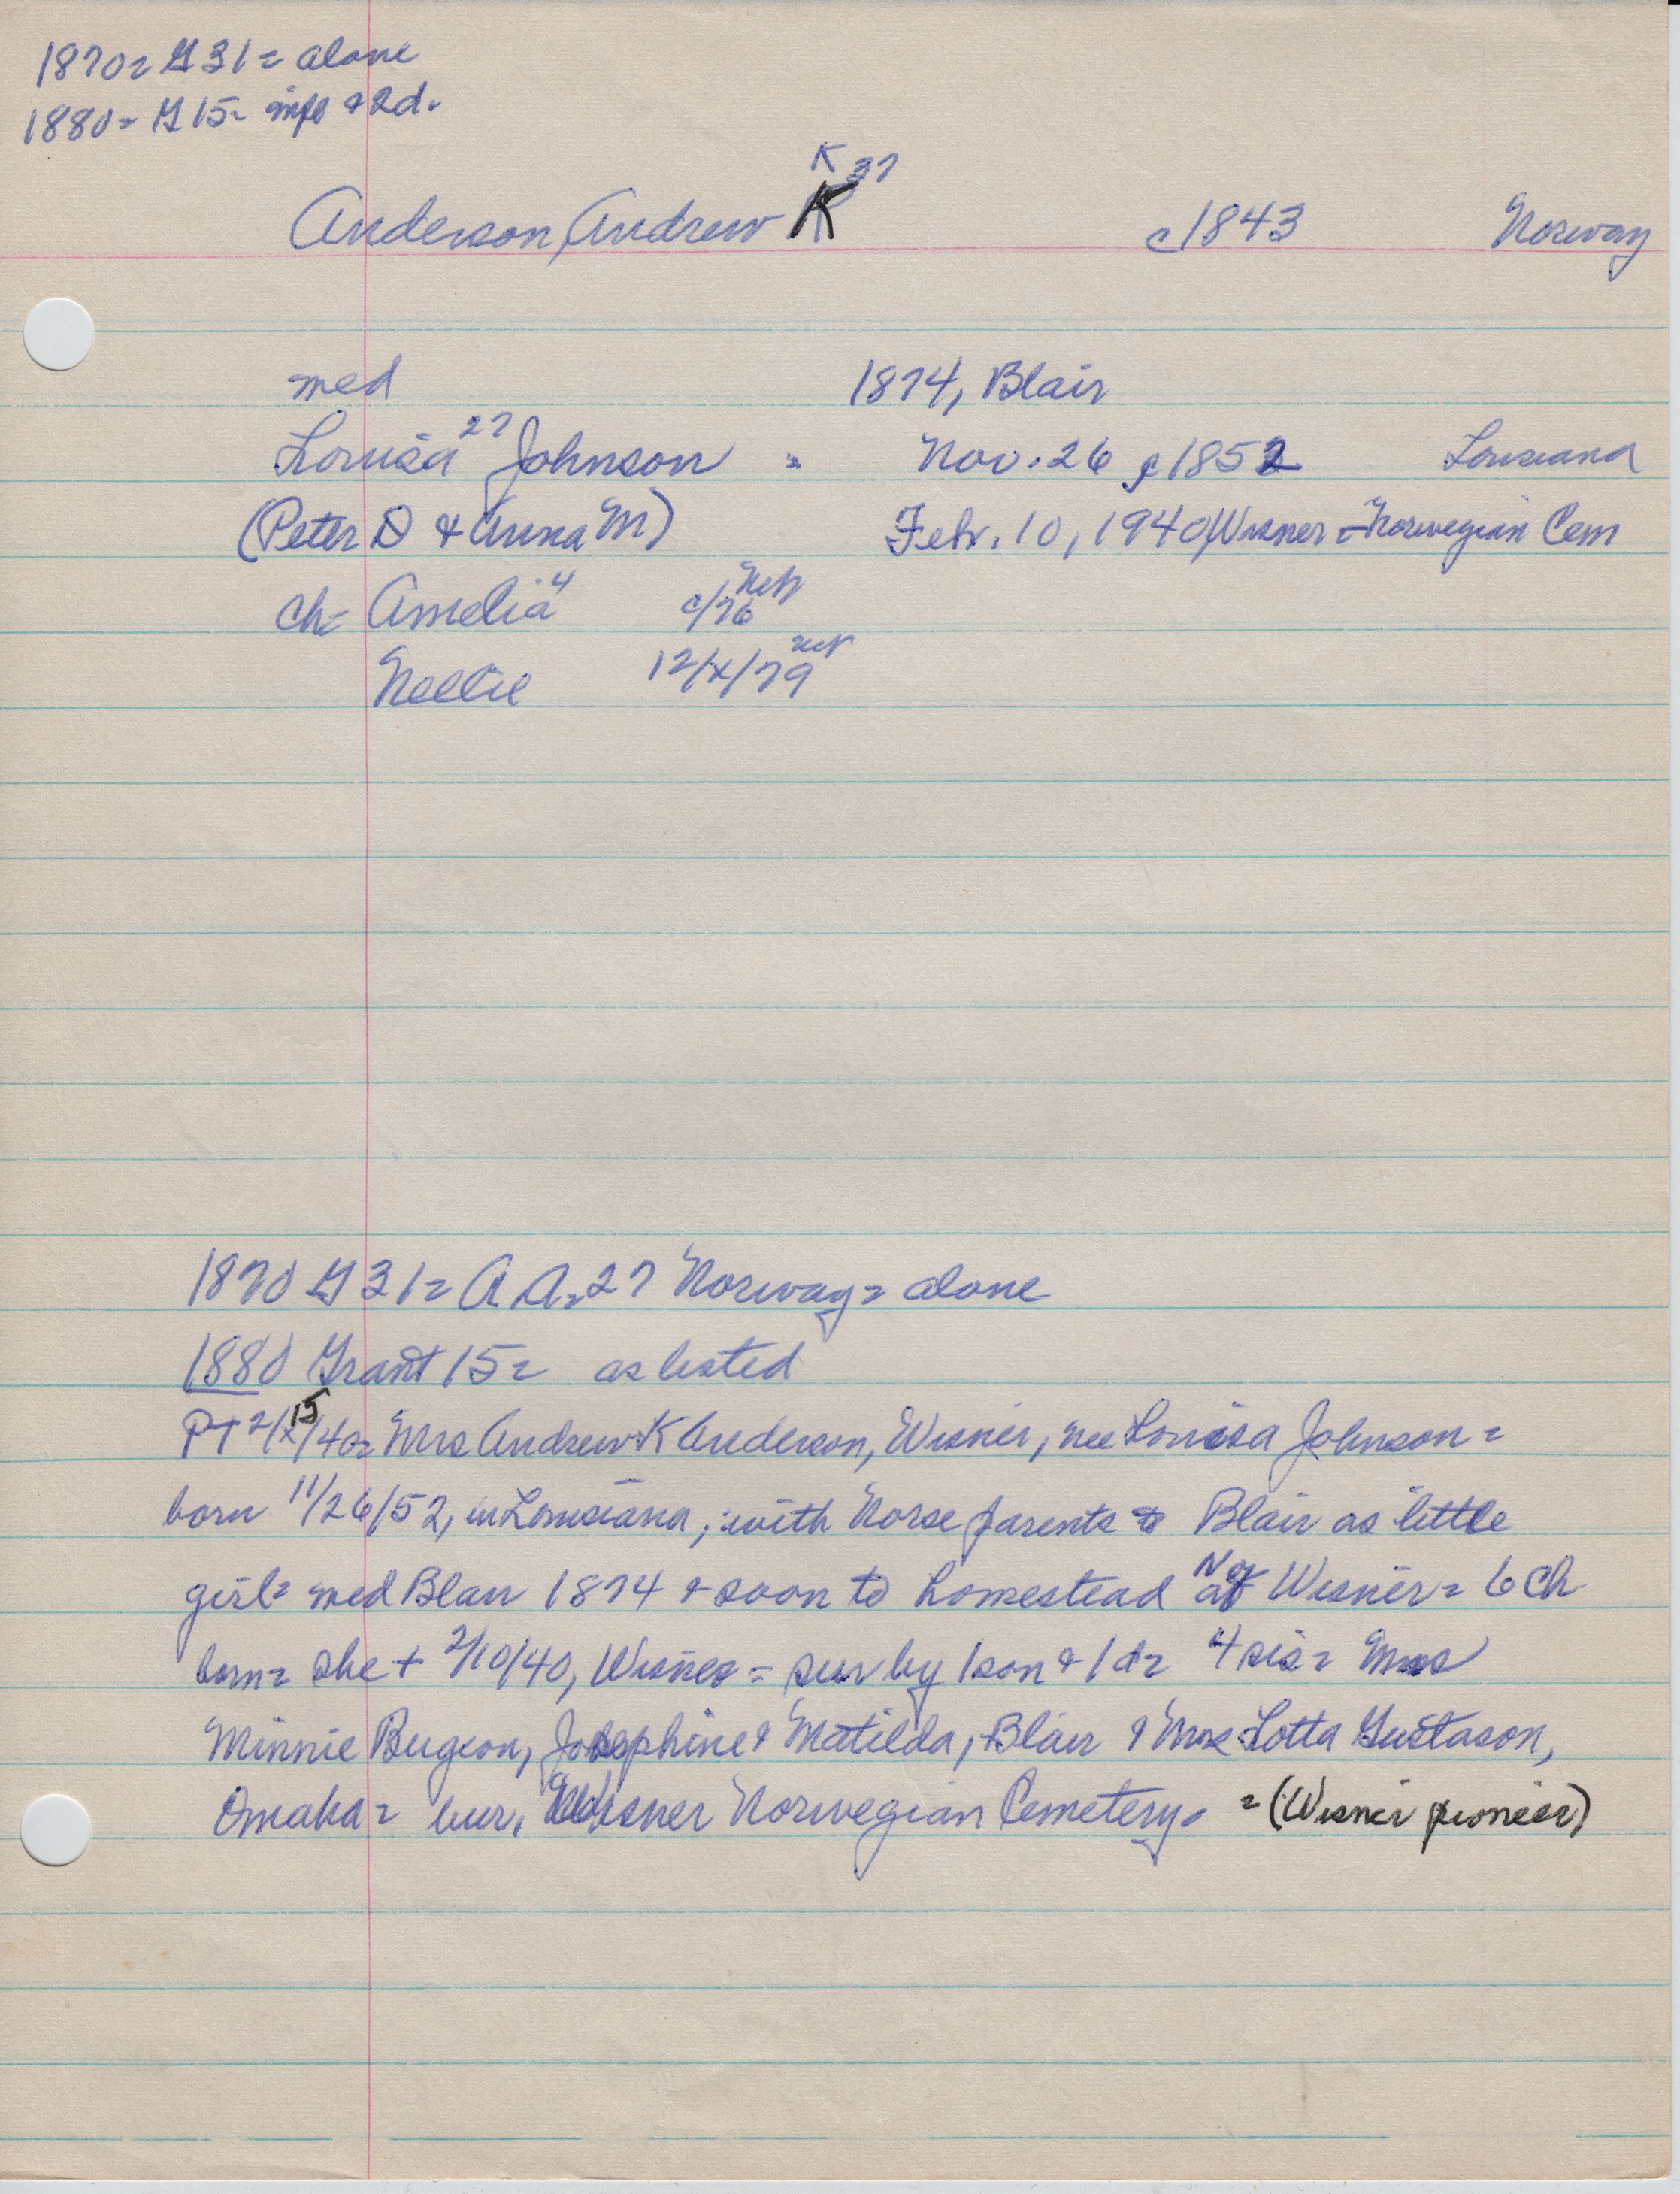 1870= G 31= alone
1880= G 15= inf & 2d.
K 37
Anderson, Andrew K c1843 Norway
med 1874, Blair
Louisa 27 Johnson = Nov. 26 c1852 Louisiana
(Peter O & Anna M) Febr. 10, 1940, Wisner = Norwegian Cem
ch= Amelia 4 c/76 Neb
Nellie 12/x/79 Neb
1870 G 31= A A= 27 Norway= alone
1880 Grant 15= as listed
PT 2/15/40= Mrs Andrew K Anderson, Wisner, nee Louisa Johnson =
born 11/26/52, in Louisiana, with Norse parents to Blair as little
girl= med Blair 1874 & soon to homestead Nr Wisner= 6 ch
born= she + 2/10/40, Wisner = sur by 1 son & 1 d= 4 sis= Mrs
Minnie Bugeon, Josephine & Matilda, Blair & Mrs Lotta Gustason,
Omaha= bur. Wisner Norwegian Cemetery= = (Wisner pioneer)